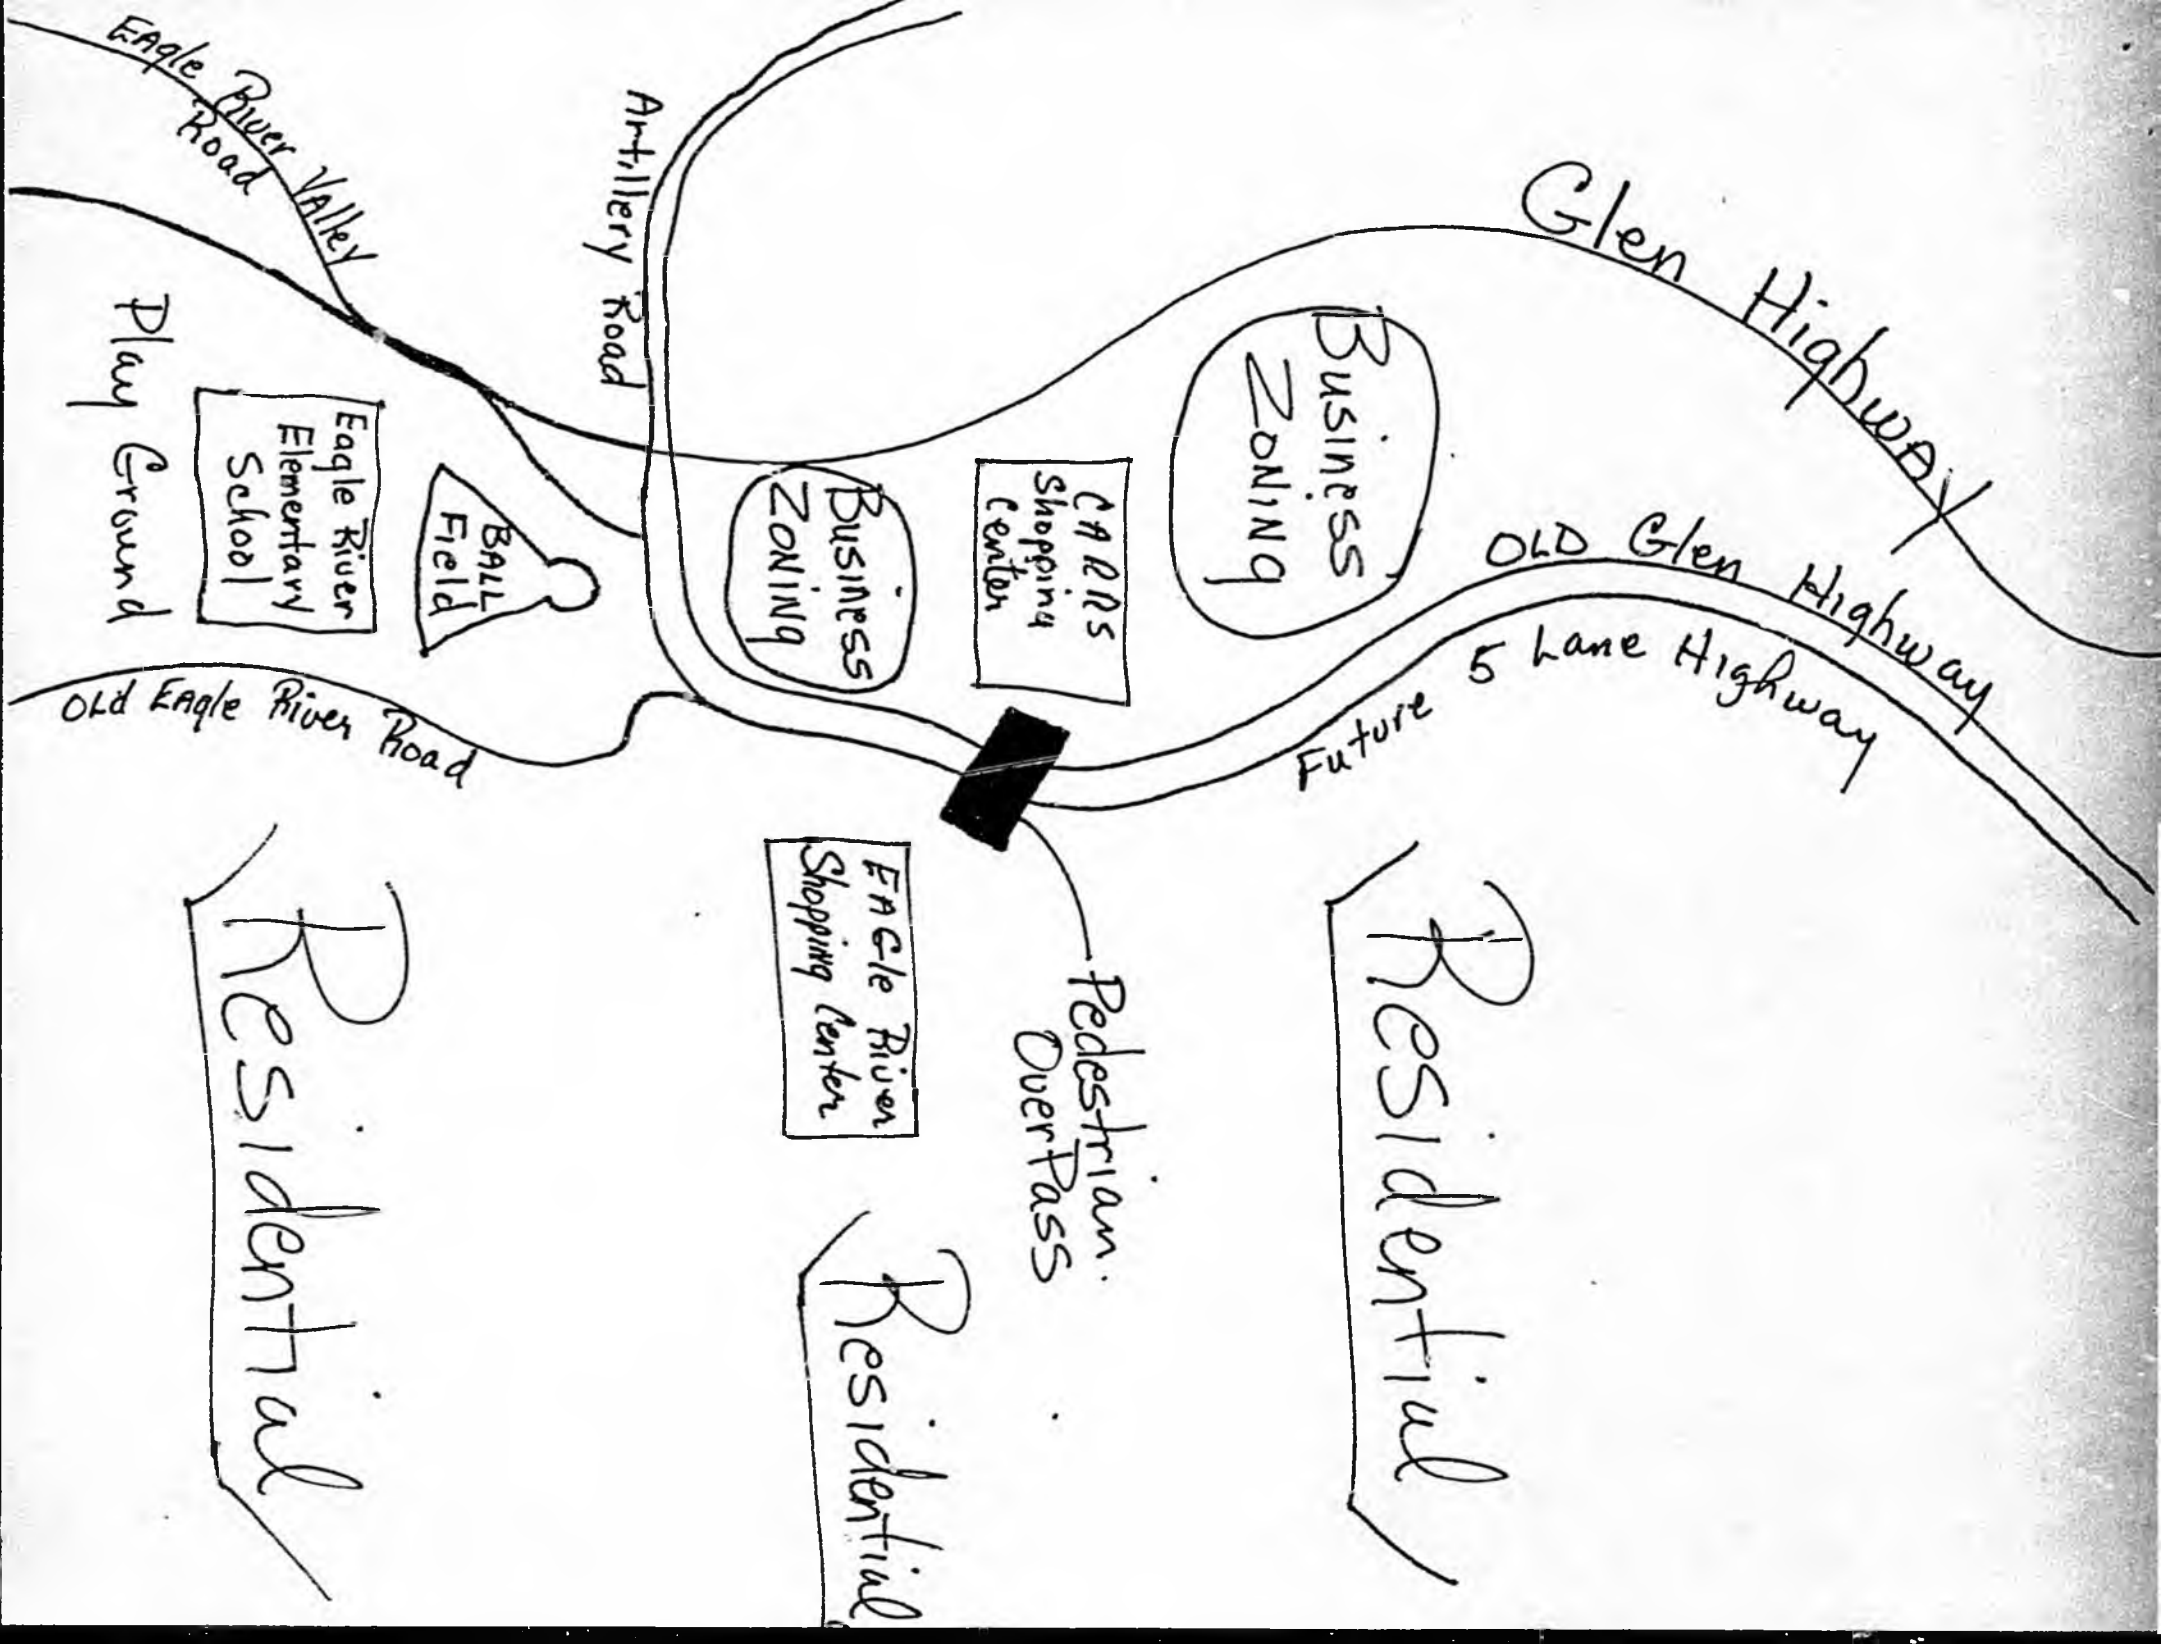 EAgle River VAlley
Road
Artillery Road
Glen HighwAy
Business
ZONINg
Play Ground
Eagle River
Elementary
School
BALL
Field
Business
ZONINg
CARRS
Shopping
Center
OLD Glen Highway
Future 5 Lane Highway
OLd EAgle River Road
EAGle River
Shopping Center
Pedestrian
OverPass
Residential
Residential
Residential